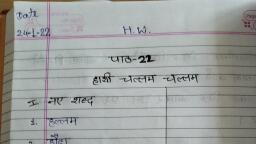 Date
24-1-22
H.W.
पाठ-22
हाथी चल्लम चल्लम
I- नए शब्द
1. हल्लम
2. हौदा